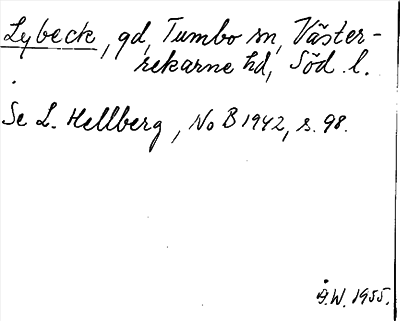 Lybeck, gd, Tumbo sn, Väster-
rekarne hd, Söd. l.
Se L. Hellberg, No B 1942, s. 98.
G.W. 1955.